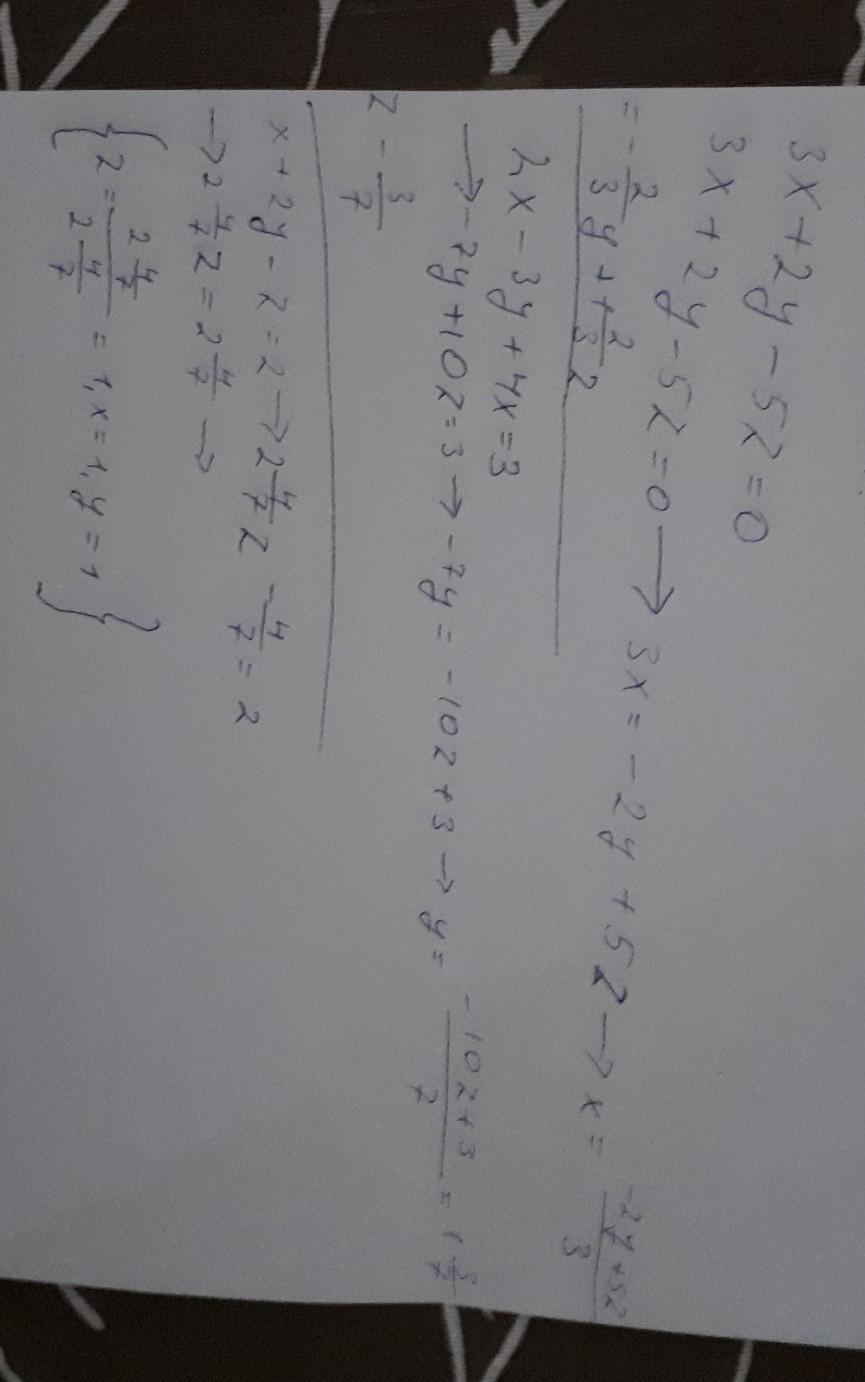 3x + 2y - 5z = 0
3x + 2y - 5z = 0 → 3x = -2y + 5z → x = (-2y + 5z)/3
= -2/3 y + 1 2/3 z
2x - 3y + 4x = 3
→ -7y + 10z = 3 → -7y = -10z + 3 → y = (-10z + 3)/7 = 1 3/7
z - 3/7
x + 2y - z = 2 → 2 4/7 z - 4/7 = 2
→ 2 4/7 z = 2 4/7 →
{z = (2 4/7)/(2 4/7) = 1, x = 1, y = 1}